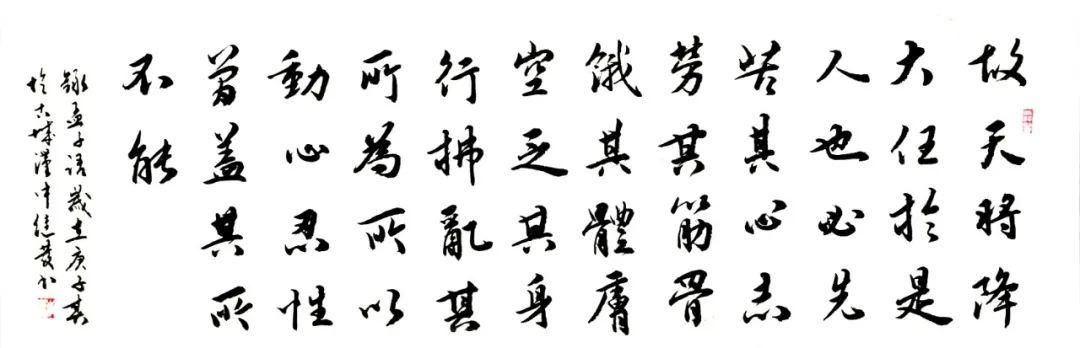 故天将降
大任於是
人也必先
苦其心志
劳其筋骨
餓其體膚
空乏其身
行拂亂其
所為所以
動心忍性
曾益其所
不能
錄孟子語歲在庚子春
於古城漢中